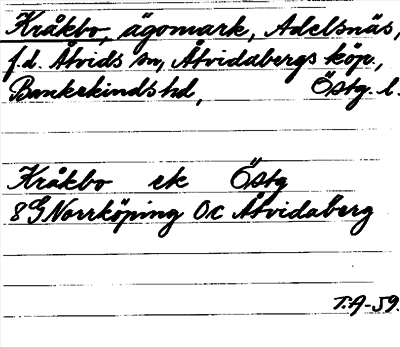 Kråkbo, ägomark, Adelsnäs,
f.d. Åtvids sn, Åtvidabergs köp.,
Bankekindshd, Östg. l.
Kråkbo ek Östg
8G Norrköping Oc Åtvidaberg
T.A-59.